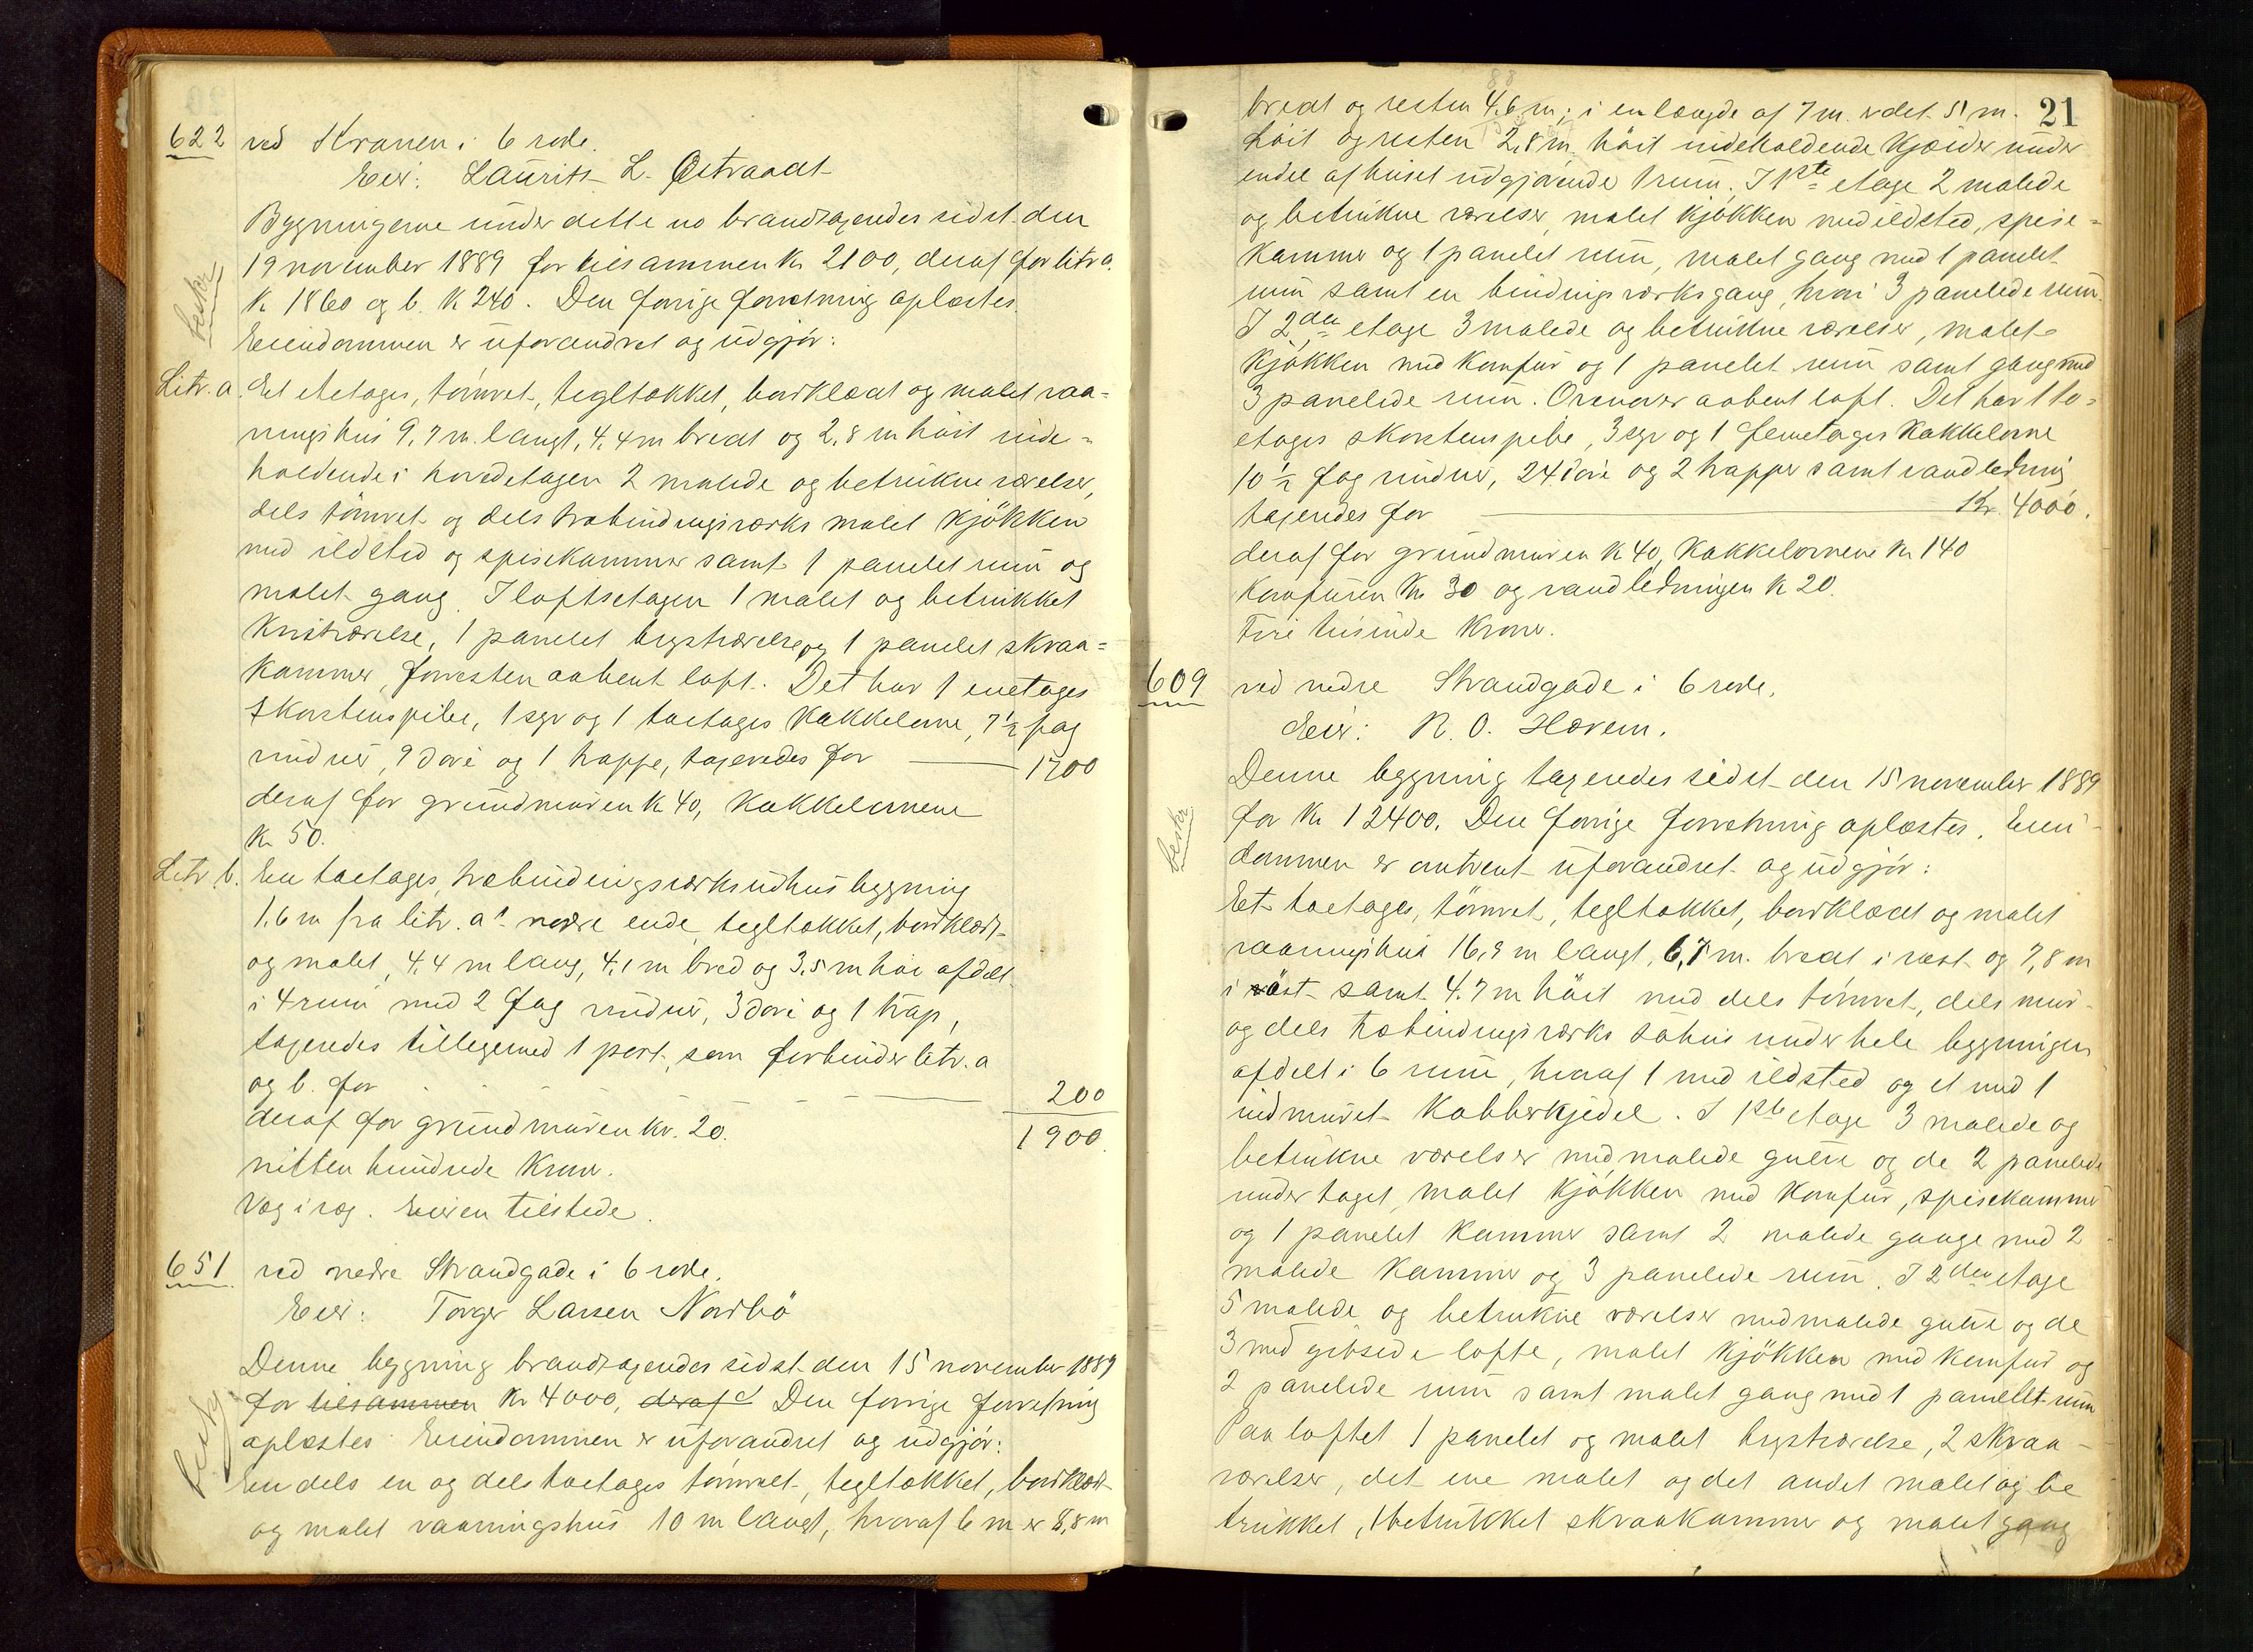 622 ved Kranen i 6 rode.
Eier: Laurits L. Østraadt
Bygningerne under dette no brandtaxeredes sidst den
19 november 1889 for tilsammen Kr 2100, deraf for litr a.
Kr 1860 og b. Kr 240. Den forrige forretning oplæstes.
beskr
Eiendommen er uforandret og udgjør:
Litr. a. Et etetages, tømret, tegltækket, bordklædt og malet vaa=
ningshus 9,7 m. langt, 4,4 m bredt og 2,8 m høit inde=
holdende i hovedetagen 2 malede og betrukne værelser,
dels tømret og dels træbindingsværks malet kjøkken
med ildsted og spisekammer samt 1 panelet rum og
malet gang. I loftsetagen 1 malet og betrukket
kvistværelse, 1 panelet brystværelse og 1 panelet skraa=
kammer, forresten aabent loft. Det har 1 enetages
skorstenspibe, 1 sgr og 1 toetages kakkelovne, 7½ fag
vinduer, 9 døre og 1 trappe, taxeredes for — 1700
deraf for grundmuren Kr 40, kakkelovnene
Kr 50.
Litr. b. En toetages, træbindingsværks udhusbygning
1,6 m fra litr. a's nedre ende, tegltækket, bordklædt
og malet, 4,4 m lang, 4,1 m bred og 3,5 m høi afdelt
i 4 rum med 2 fag vinduer, 3 døre og 1 trap,
taxeredes tilligemed 1 port, som forbinder litr. a
og b. for — 200
deraf for grundmuren kr. 20. 1900.
nitten hundrede Kroner.
Væg i væg. Eieren tilstede.
651 ved nedre Strandgade i 6 rode.
Eier: Torger Larsen Nordbø
Denne bygning brandtaxeredes sidst den 15 november 1889
for tilsammen Kr 4000, deraf Den forrige forretning
beskr
oplæstes Eiendommen er uforandret og udgjør:
En dels en og dels toetages tømret, tegltækket, bordklædt
og malet vaaningshus 10 m langt, hvoraf 6 m er 8,8 m
21
bredt og resten 4,6 m; i en længde af 7 m. er det 5,1 m.
høit og resten 2,8 m høit indeholdende kjælder under
endel af huset udgjørende 1 rum. I 1ste etage 2 malede
og betrukne værelser, malet kjøkken med ildsted, spise=
kammer og 1 panelet rum, malet gang med 1 panelet
rum samt en bindingsværks gang, hvori 3 panelede rum.
I 2den etage 3 malede og betrukne værelser, malet
kjøkken med komfur og 1 panelet rum samt gang med
3 panelede rum. Ovenover aabent loft. Det har 1 to=
etages skorstenspibe, 3 sgr og 1 femetages kakkelovne
10½ fag vinduer, 24 døre og 2 trapper samt vandledning
taxeredes for — Kr. 4000.
deraf for grundmuren Kr 40, Kakkelovnene Kr 140
Komfuren Kr 30 og vandledningen Kr 20.
Fire tusinde Kroner.
609 ved nedre Strandgade i 6 rode.
Eier: R. O. Hævem.
Denne bygning taxeredes sidst den 15 november 1889
for Kr 12400. Den forrige forretning oplæstes. Eien-
beskr
dommen er omtrent uforandret og udgjør:
Et toetages, tømret, tegltækket, bordklædt og malet
vaaningshus 16,9 m langt, 6,7 m. bredt i vest og 7,8 m
i øst samt 4,7 m høit med dels tømret, dels mur-
og dels træbindingsværks søhus under hele bygningen
afdelt i 6 rum, hvoraf 1 med ildsted og et med 1
indmuret kobberkjedel. I 1ste etage 3 malede og
betrukne værelser med malede gulve og de 2 panelede
under taget, malet kjøkken med komfur, spisekammer
og 1 panelet kammer samt 2 malede gange med 2
malede kammer og 3 panelede rum. I 2den etage
5 malede og betrukne værelser med malede gulve og de
3 med gibsede lofte, malet kjøkken med komfur og
2 panelede rum samt malet gang med 1 panellet rum
Paa loftet 1 panelet og malet brystværelse, 2 skraa-
værelser, det ene malet og det andet malet og be
trukket, 1 betrukket skraakammer og malet gang